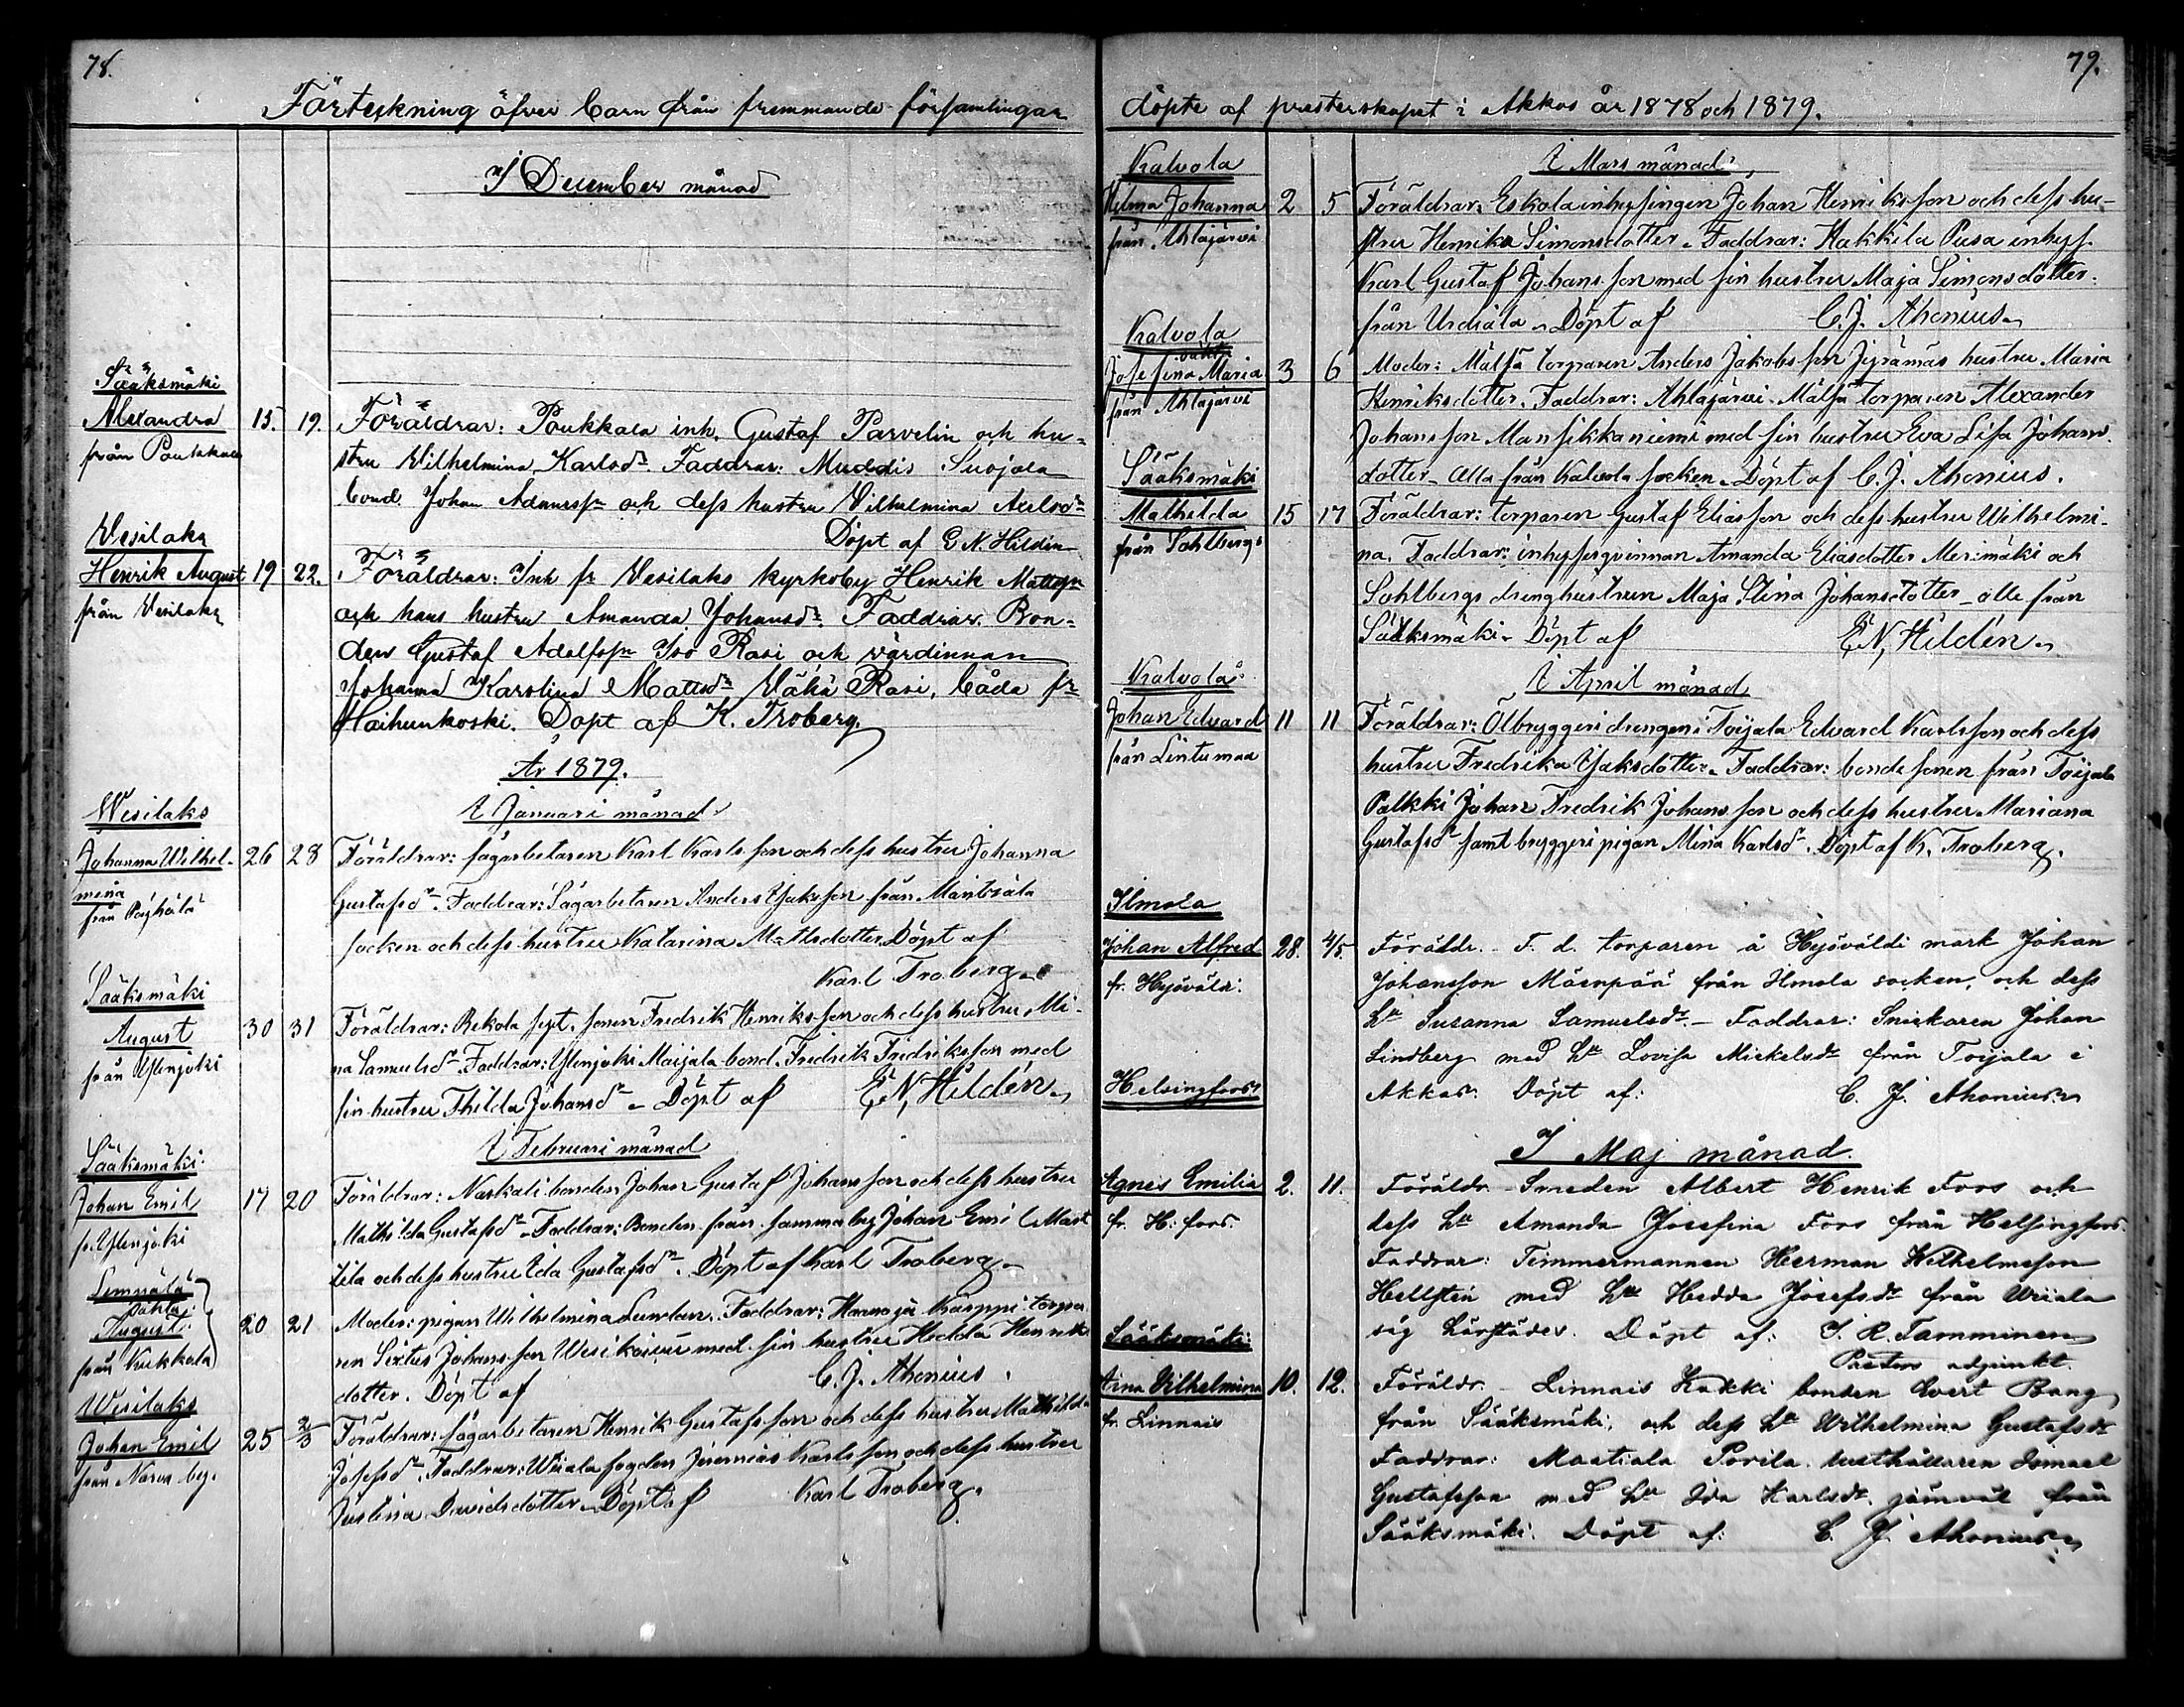 78.
Förteckning öfver barn från fremmande församlingar
I December månad
Sääksmäki
Alexandra 15. 19. Föräldrar: Paukkala inh. Gustaf Parvelin och hu-
från Paukkala stru Vilhelmina Karlsdr. Faddrar: Muddis Suojala
bond. Johan Adamsfn och dess hustru Vilhelmina Axelsdr
Döpt af E N. Hildén
Vesilaks
Henrik August 19 22. Föräldrar: Inh fr Vesilaks kyrkoby Henrik Mattsfn
från Vesilaks och hans hustru Amanda Johansdr. Faddrar. Bon-
den Gustaf Adolfsfn Iso Rasi och värdinnan
Johanna Karolina Mattsdr Vähä Rasi, båda fr
Haihunkoski. Döpt af K. Troberg.
År 1879.
I Januari månad
Wesilaks
Johanna Wilhel- 26 28 Föräldrar: sågarbetaren Karl Karlsson och dess hustru Johanna
mina
från Päjhälä Gustafsdr. Faddrar: Sågarbetaren Anders Isaksson från Mäntsälä
socken och dess hustru Katarina Mattsdotter. Döpt af
Karl Troberg
Sääksmäki
August 30 31 Föräldrar: Rekola syst. sonen Fredrik Henriksson och dess hustru Mi-
från Ylenjoki na Samuelsdr. Faddrar: Ylenjoki Maijala bond. Fredrik Fredriksson med
sin hustru Thilda Johansdr. Döpt af E, N, Hildén
I Februari månad
Sääksmäki
Johan Emil 17 20 Föräldrar: Naskali bonden Johan Gustaf Johansson och dess hustru
fr. Ylenjoki Mathilda Gustafsdr. Faddrar: Bonden från samma by Johan Emil Mart
tila och dess hustru Ida Gustafsdr. Döpt af Karl Troberg
Lempäälä
oäkta
August 20 21 Moder: pigan Wilhelmina Lundan. Faddrar: Karppi torpa-
från Kukkola ren Sixtus Johansson Wesikoivu med sin hustru Hedda Henriks
dotter. Döpt af C. J. Ahonius.
Wesilaks
Johan Emil 25 2/3 Föräldrar: sågarbetaren Henrik Gustafsson och dess hustru Mathilda
från Narva by. Josefsdr. Faddrar: Wiiala fogden Jeremias Karlsson och dess hustru
Justina Davidsdotter. Döpt af Karl Troberg.
79.
döpte af presterskapet i Akkas år 1878 och 1879.
I Mars månad
Kalvola
Hilma Johanna 2 5 Föräldrar: Eskola inhysingen Johan Henriksson och dess hu-
från Ahlajärvi stru Henrika Simonsdotter. Faddrar: Kakkila Pusa inhys.
Karl Gustaf Johansson med sin hustru Maja Simonsdotter
från Urdiala. Döpt af C. J. Ahonius
Kalvola
oäkta
Josefina Maria 3 6 Moder: Mälsä torparen Anders Jakobsson Jyrämäs hustru Maria
från Ahlajärvi Henriksdotter. Faddrar: Ahlajärvi Mälsä torparen Alexander
Johansson Mansikkaniemi med sin hustru Eva Lisa Johans-
dotter. alla från Kalvola socken. Döpt af C. J. Ahonius.
Sääksmäki
Mathilda 15 17 Föräldrar: torparen Gustaf Eliasson och dess hustru Wilhelmi-
från Sahlbergs na. Faddrar: inhysesqvinnan Amanda Eliasdotter Merimäki och
Sahlbergs dränghustrun Maja Stina Johansdotter alle från
Sääksmäki. Döpt af E, N, Hildén
I April månad
Kalvola
Johan Edvard 11 11 Föräldrar: Ölbryggeridrängen i Toijala Edvard Karlsson och dess
från Lintumaa hustru Fredrika Isaksdotter. Faddrar: bondesonen från Toijala
Palkki Johan Fredrik Johansson och dess hustru Mariana
Gustafsdr samt bryggeripigan Mina Karlsdr. Döpt af K. Troberg.
Ilmola
Johan Alfred 28. 4/5. Föräldr. - F. d. torparen å Hyöväldi mark Johan
fr. Hyöväldi. Johansson Mäenpää från Ilmola socken, och dess
hu Susanna Samuelsdr. - Faddrar: Snickaren Johan
Lindberg med hu Lovisa Mickelsdr från Toijala i
Akkas. Döpt af: C. J. Ahonius
Helsingfors
I Maj månad.
Agnes Emilia 2. 11. Föräldr. - Smeden Albert Henrik Fors och
fr. H:fors. dess hu Amanda Josefina Fors från Helsingfors.
Faddrar: Timmermannen Herman Wilhelmsson
Hellsten med hu Hedda Josefsdr från Wiiala
såg härstädes. Döpt af: J. R. Tamminen
Pastors adjunkt.
Sääksmäki
Aina Vilhelmina 10. 12. Föräldr. - Linnais Kakki bonden Evert Bang
fr. Linnais från Sääksmäki, och dess hu Wilhelmina Gustafsdr
Faddrar: Maatiala Porila husthållaren Ismael
Gustafsson med hu Ida Karlsdr. jämväl från
Sääksmäki. Döpt af: C. J. Ahonius